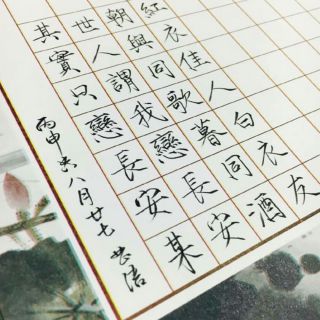 紅衣佳人白衣友
朝與同歌暮同酒
世人謂我戀長安
其實只戀長安某
丙申 八月廿七